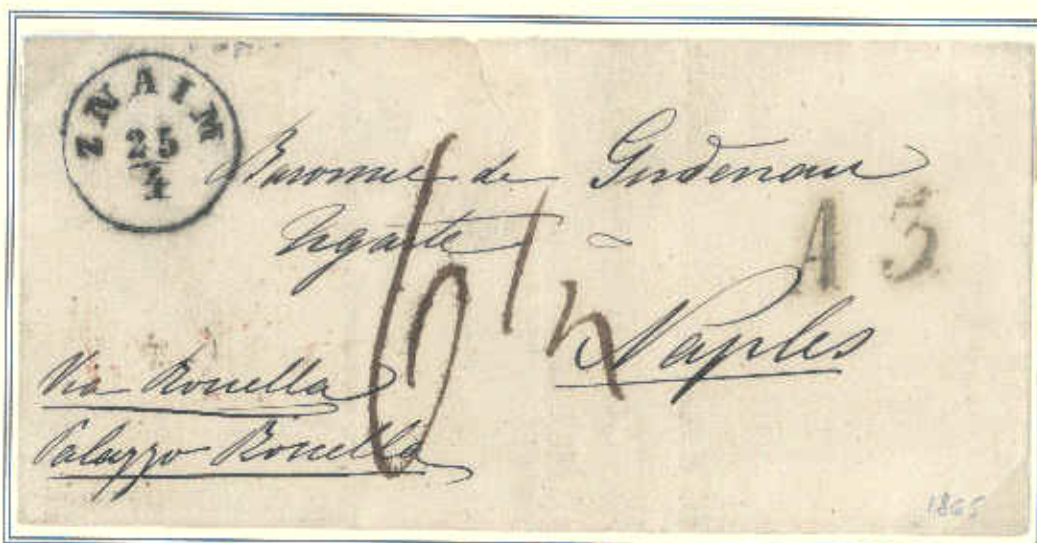 ZNAIM
25
4
Baronne de Gudenau
Ugarte
A 3
6 1/2
Naples
Via Bonella
Palazzo Bonella
1865